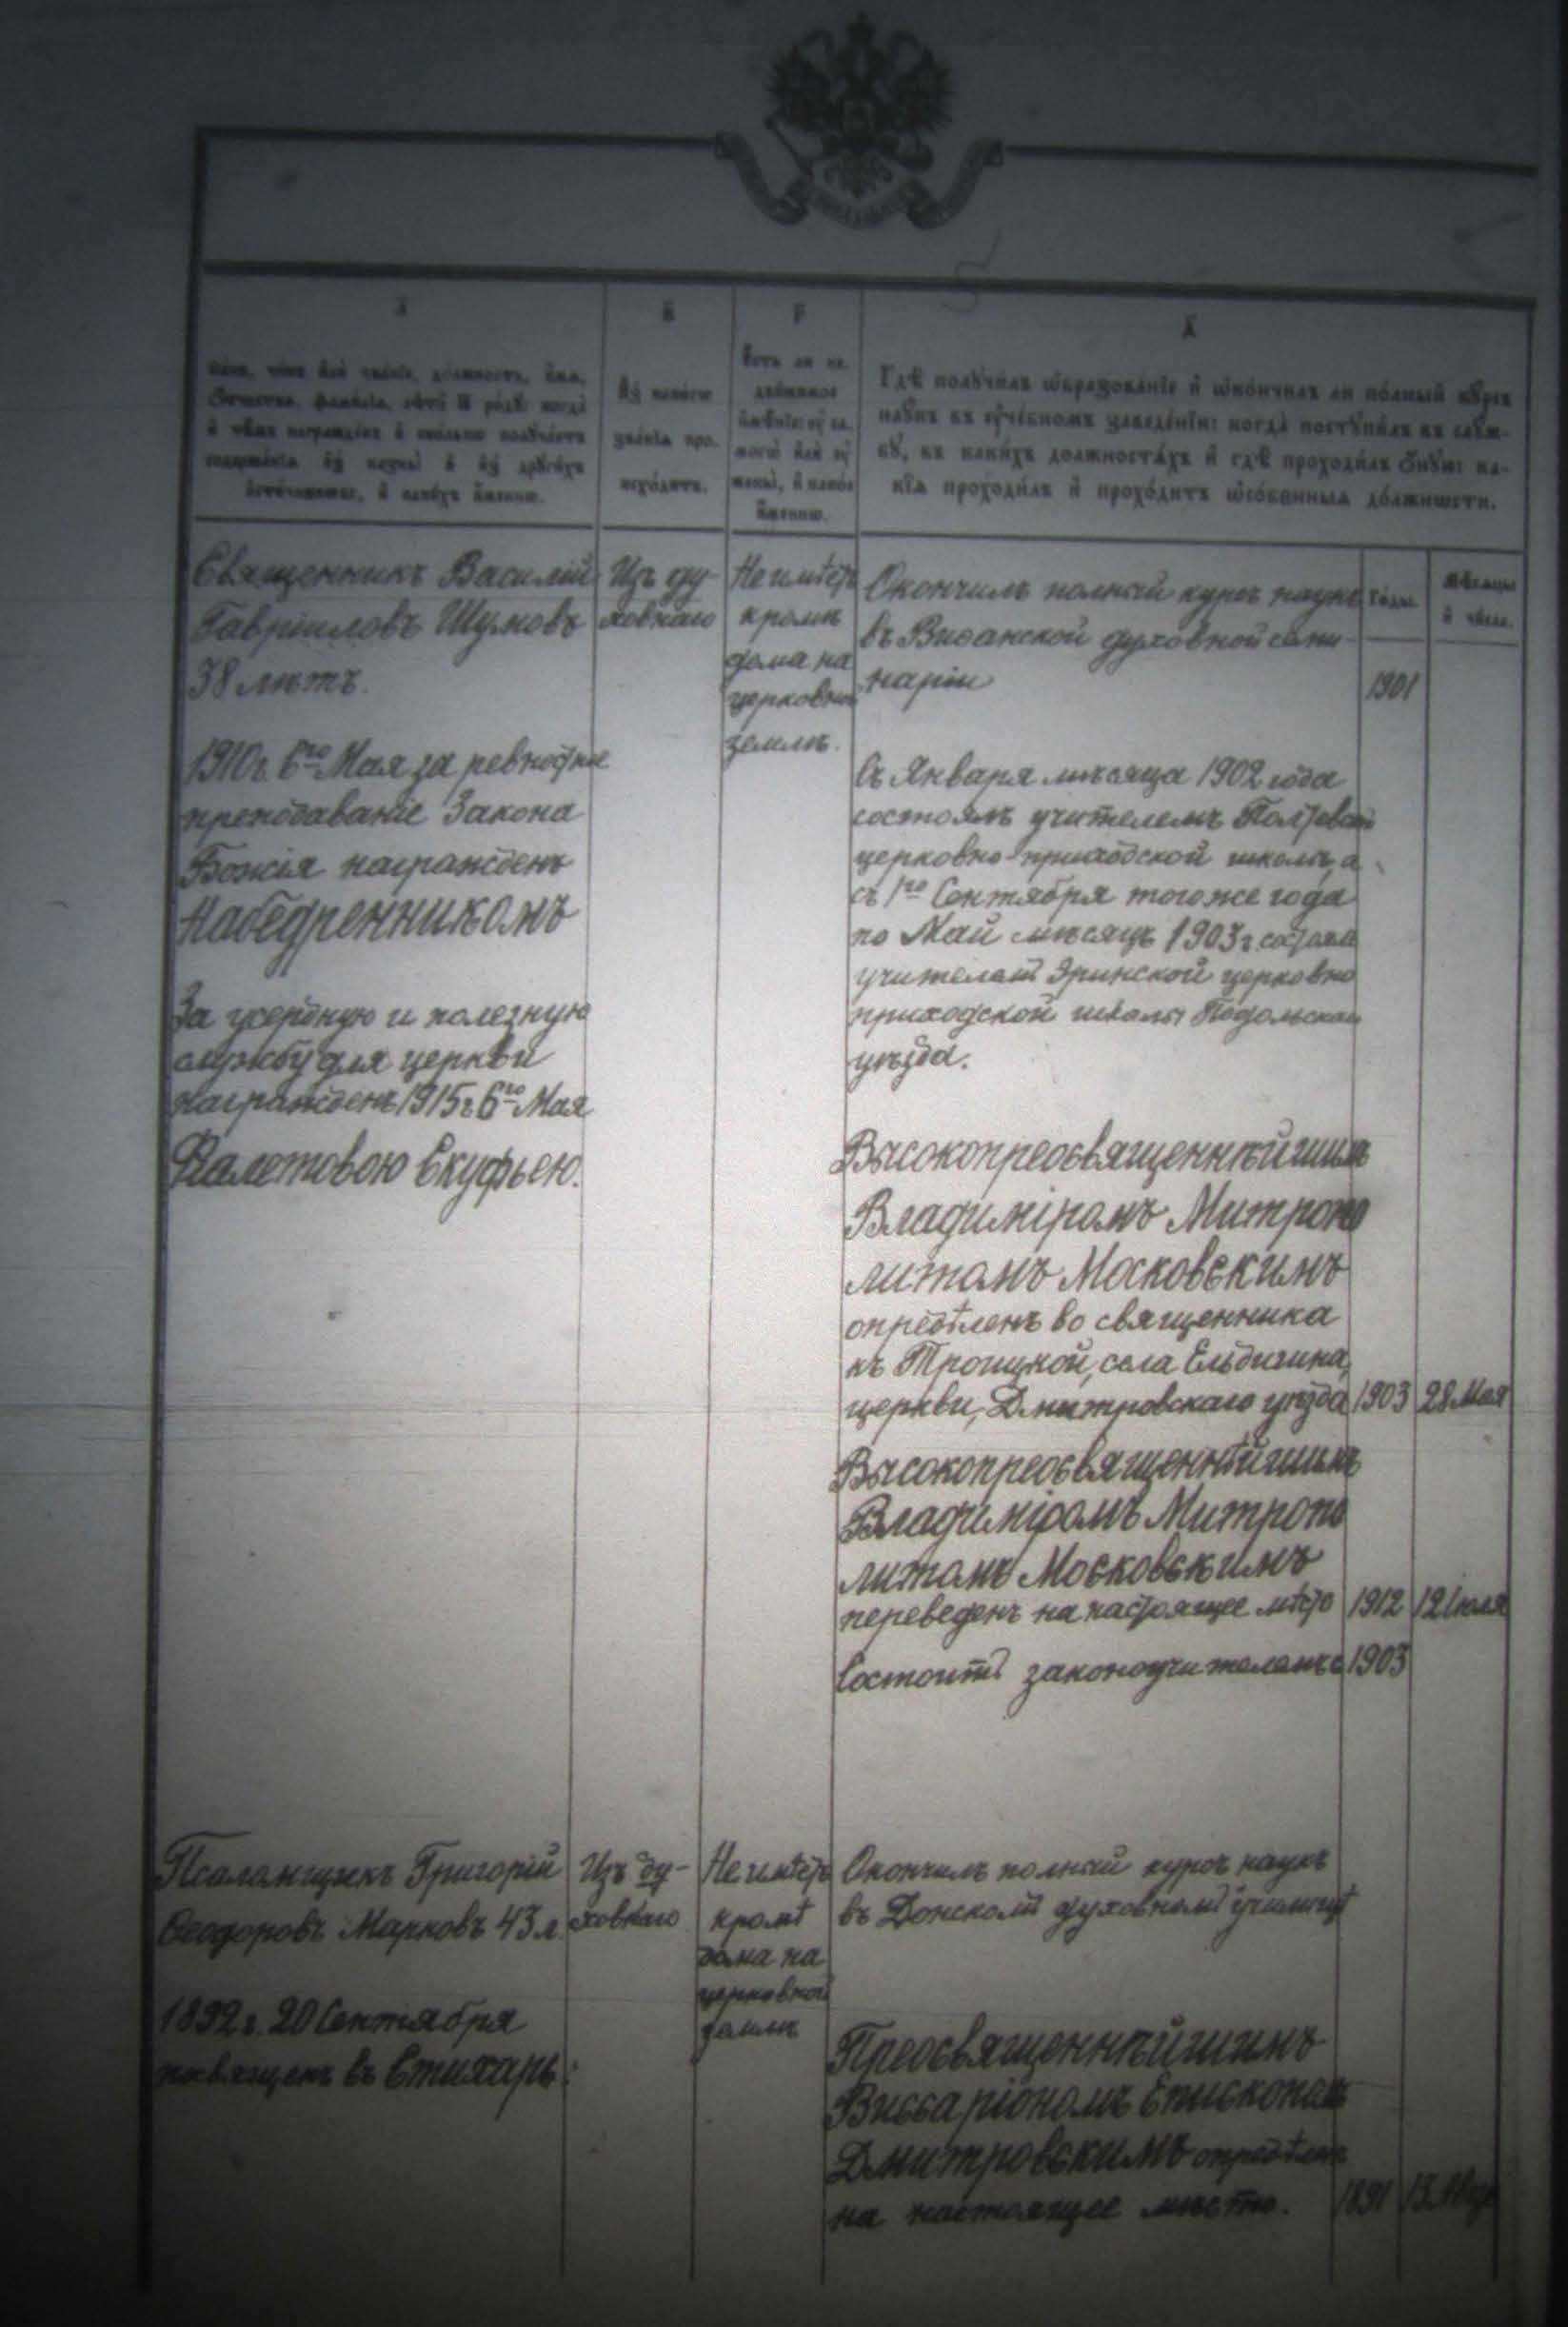 а҃
Санъ, чинъ или званіе, должность, имя,
отчество, фамилія, лѣтъ ѿ роду: когда
и чѣмъ награжденъ и сколько получаетъ
содержанія изъ казны и изъ другихъ
источниковъ, и какихъ именно.
в҃
Изъ какого
званія про-
исходитъ.
г҃
Есть ли не-
движимое
имѣніе: у са-
мого или у
жены, и какое
именно.
д҃
Гдѣ получилъ ѡбразованіе и ѡкончилъ ли полный курсъ
наукъ въ учебномъ заведеніи: когда поступилъ въ служ-
бу, въ какихъ должностяхъ и гдѣ проходилъ оную: ка-
кія проходилъ и проходитъ ѡсобенныя должности.
Годы.
Мѣсяцы
и числа.
Священникъ Василій
Гавріиловъ Шумовъ
38 лѣтъ.
1910 г. 6го Мая за ревностное
преподаваніе Закона
Божія награжденъ
Набедренникомъ
За усердную и полезную
службу для церкви
награжденъ 1915 г. 6го Мая
Фіолетовою Скуфьею.
Изъ ду-
ховнаго
Не имѣетъ
кромѣ
дома на
церковной
землѣ.
Окончилъ полный курсъ наукъ
въ Виѳанской духовной семи-
наріи
1901
Съ Января мѣсяца 1902 года
состоялъ учителемъ
церковно-приходской школы, а
съ 1го Сентября того же года
по Май мѣсяцъ 1903 г. состоялъ
учителемъ Эринской церковно
приходской школы Подольскаго
уѣзда.
Высокопреосвященнѣйшимъ
Владиміромъ Митропо
литомъ Московскимъ
опредѣленъ во священника
къ Троицкой, села Ельдигина,
церкви, Дмитровскаго уѣзда
1903
28 Мая
Высокопреосвященнѣйшимъ
Владиміромъ Митропо
литомъ Московскимъ
переведенъ на настоящее мѣсто
1912
12 Іюля
Состоитъ законоучителемъ с
1903
Псаломщикъ Григорій
Ѳеодоровъ Марковъ 43 л.
1892 г. 20 Сентября
посвященъ въ Стихарь.
Изъ ду-
ховнаго
Не имѣетъ
кромѣ
дома на
церковной
землѣ
Окончилъ полный курсъ наукъ
въ Донскомъ духовномъ училищѣ
Преосвященнѣйшимъ
Виссаріономъ Епископомъ
Дмитровскимъ опредѣленъ
на настоящее мѣсто.
1891